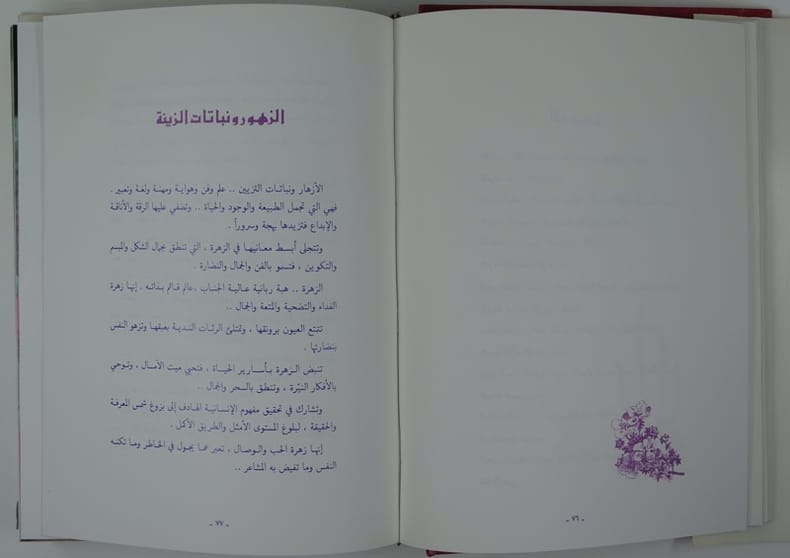 - ٧٦ -
الزهور ونباتات الزينة
الأزهار ونباتات التزيين .. علم وفن وهواية ومهنة ولغة وتعبير .
فهي التي تجمل الطبيعة والوجود والحياة .. وتضفي عليها الرقة والأناقة
والإبداع فتزيدها بهجة وسروراً .
وتتجلى أبسط معانيها في الزهرة ، التي تنطق بجمال الشكل والمبسم
والتكوين ، فتسمو بالفن والجمال والنضارة .
الزهرة .. هبة ربانية عالية الجناب ، عالم قائم بذاته . إنها زهرة
الفداء والتضحية والمتعة والجمال ..
تتمتع العيون برونقها ، وتمتلئ الرئات الندية بعبقها وتزهو النفس
بنضارتها .
تنبض الزهرة بأسارير الحياة ، فتحيي ميت الآمال ، وتوحي
بالأفكار النيّرة ، وتنطق بالسحر والجمال ..
وتشارك في تحقيق مفهوم الإنسانية الهادف إلى بزوغ شمس المعرفة
والحقيقة ، لبلوغ المستوى الأمثل والطريق الأكمل .
إنها زهرة الحب والوصال ، تعبر عما يجول في الخاطر وما تكنه
النفس وما تفيض به المشاعر ..
- ٧٧ -